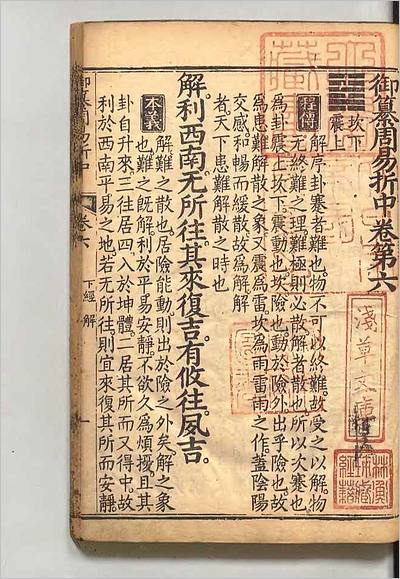 御纂周易折中卷第六
坎下
震上
程傳
解序卦蹇者難也。物不可以終難。故受之以解。物
无終難之理。難極則必散。解者散也。所以次蹇也。
爲卦震上坎下。震動也。坎險也。動於險外。出乎險也。故
爲患難解散之象。又震爲雷。坎爲雨。雷雨之作。蓋陰陽
交感。和暢而緩散。故爲解。解
者天下患難解散之時也。
解。利西南。无所往。其來復吉。有攸往。夙吉。
本義
解難之散也。居險能動。則出於險之外矣。解之象
也。難之既解。利於平易安靜。不欲久爲煩擾。且其
卦自升來。三往居四。入於坤體。二居其所而又得中。故
利於西南平易之地。若无所往。則宜來復其所而安靜。
御纂周易折中
卷六
下經 解
淺草文庫